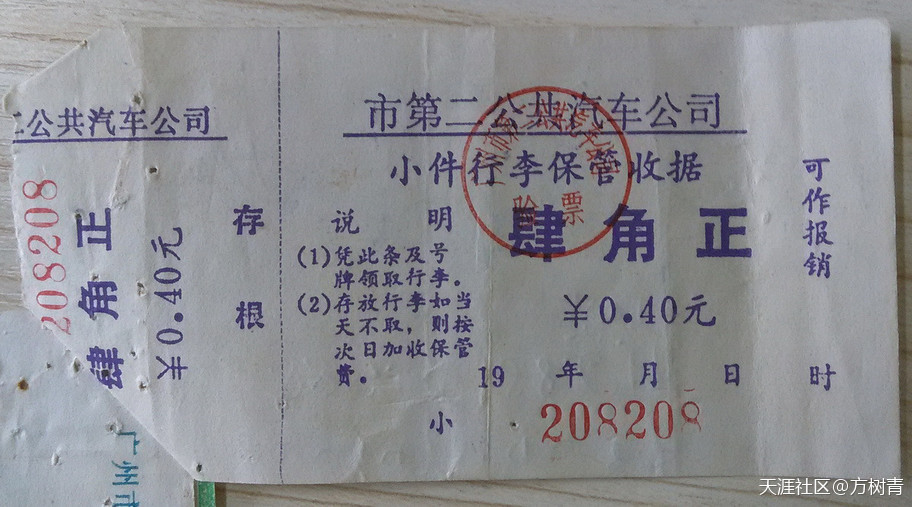 公共汽车公司
208208
肆角正
￥0.40元
存根
市第二公共汽车公司
小件行李保管收据
验票
肆角正
￥0.40元
说明
(1)凭此条及号
牌领取行李。
(2)存放行李如当
天不取，则按
次日加收保管
费。
19 年 月 日 时
小
208208
可作报销
广州市
天涯社区@方树青